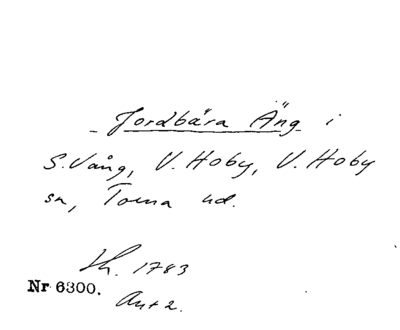 Jordbära Äng i
S. Vång, V. Hoby, V. Hoby
sn, Torna hd.
Lh. 1783
Nr 6300.
Ant 2.